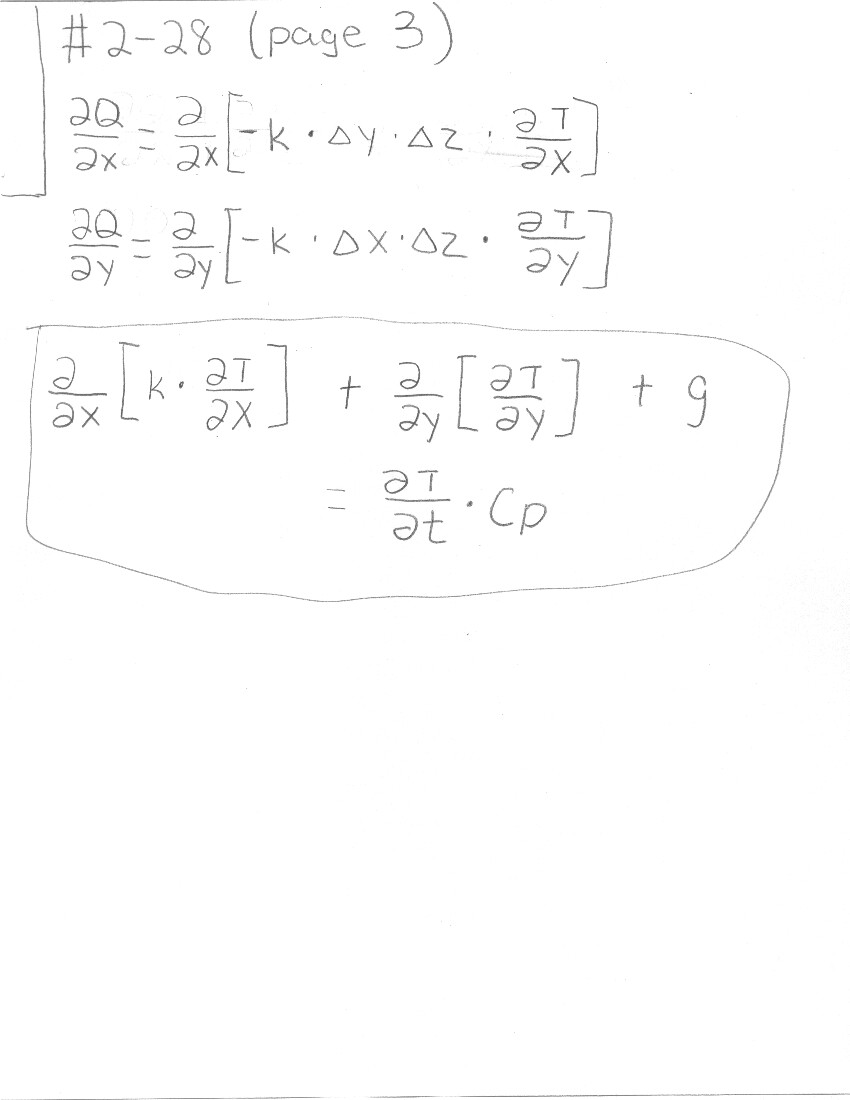 #2-28 (page 3)
∂Q/∂x = ∂/∂x [-k · Δy · Δz · ∂T/∂x]
∂Q/∂y = ∂/∂y [-k · Δx · Δz · ∂T/∂y]
∂/∂x [k · ∂T/∂x] + ∂/∂y [∂T/∂y] + g
= ∂T/∂t · Cp